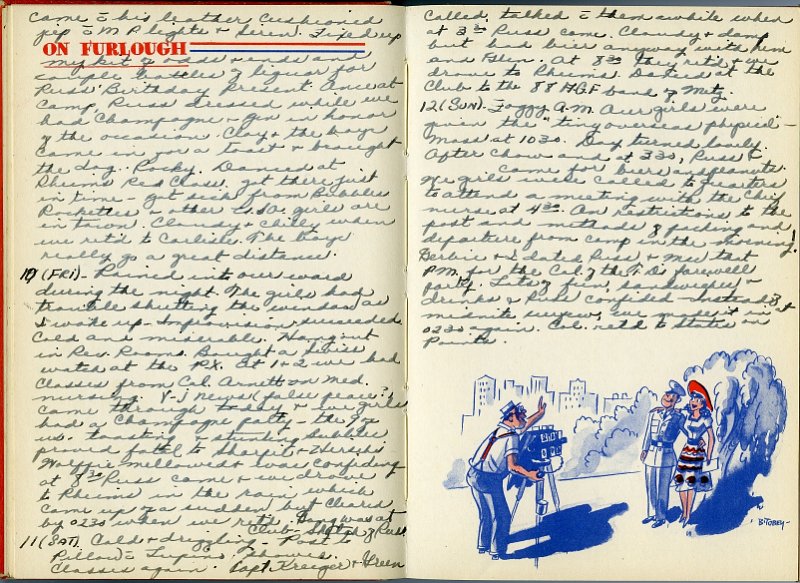 came c̄ his leather cushioned
jep c̄ M.P. lights + siren. Fixed up
ON FURLOUGH
my kit of odds + ends and
couple bottles of liquor for
Russ' Birthday present. Once at
Camp, Russ dressed while we
had Champagne + gin in honor
of the occasion. Clay + the boys
came in for a toast + brought
the dog. Rocky. Danced at
Rheims Red Cross. Got there just
in time - got sick from Bubbles
Rockettes + other U.S.O. girls are
in town. Cloudy + chilly when
we ret'd to Carlisle. The boys
really go a great distance.
10 (FRI) - Rained into our ward
during the night. The girls had
trouble shutting the window as
I woke up - Improvision succeeded
Cold and miserable. Hung out
in Rec. Rooms. Bought a Swiss
watch at the PX. At 1+2 we had
classes from Col. Arnett on med.
nursing. V-J news (false peace?)
came through today + we girls
had a Champagne party - the
us. Toasting + stunning bubbles
proved fatal to Sharpie +
mellowed + was confiding
at 8:30 Russ came + we drove
to Rheims in the rain which
came up of a sudden but cleared
by 0230 when we ret'd. Gang was at
Club - Sketch of Russ.
11 (SAT) Cold + drizzling - Post to
Pillow c̄ Lupino - Showers.
Classes again. Capt. Kreiger + Green
called, talked c̄ them awhile when
at 3:30 Russ came. Cloudy + damp
but had bier anyway with him
and Ellen. At 8:30 they ret'd + we
drove to Rheims. Danced at the
Club to the 88 HGF band of Metz.
12 (SUN). Foggy A.M. Our girls were
given the "tiny overseas physical" -
Mass at 1030. Day turned lovely.
After chow and at 330, Russ +
came for biers and peanuts.
We girls were called to quarters
to attend a meeting with the Chief
nurse at 4:30. On restrictions to the
post and methods of packing and
departure from camp in the morning!
Berbie + I dated Russ + Mew that
P.M. for the Col. of the T.D's farewell
party. Lots of fun, sandwiches +
drinks + Russ confided - Instead of
midnite curfew, we made it in at
0230 again. Col. ret'd to States on
Points.
B. TOBEY-